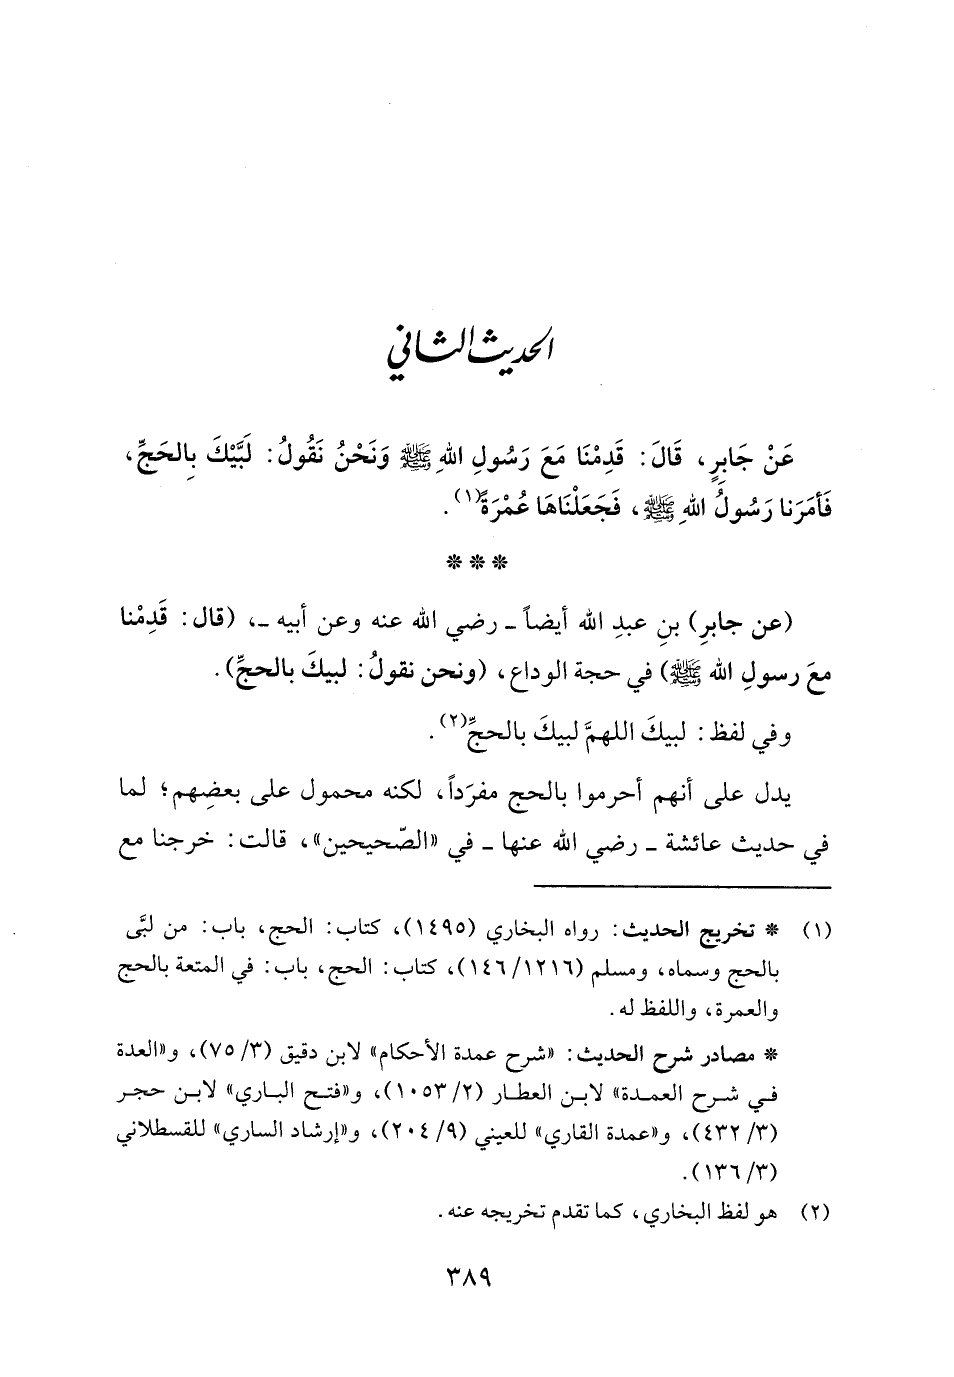 الحديث الثاني
عَنْ جَابِرٍ، قَالَ: قَدِمْنَا مَعَ رَسُولِ اللهِ ﷺ وَنَحْنُ نَقُولُ: لَبَّيْكَ بِالحَجِّ،
فَأَمَرَنا رَسُولُ اللهِ ﷺ، فَجَعَلْنَاهَا عُمْرَةً(١).
* * *
(عن جابرِ) بنِ عبدِ الله أيضاً ـ رضي الله عنه وعن أبيه ـ، (قال: قَدِمْنا
معَ رسولِ الله ﷺ) في حجة الوداع، (ونحن نقولُ: لبيكَ بالحجِّ).
وفي لفظ: لبيكَ اللهمَّ لبيكَ بالحجِّ(٢).
يدل على أنهم أحرموا بالحج مفرَداً، لكنه محمول على بعضِهم؛ لما
في حديث عائشة ـ رضي الله عنها ـ في «الصّحيحين»، قالت: خرجنا مع
(١) * تخريج الحديث: رواه البخاري (١٤٩٥)، كتاب: الحج، باب: من لبَّى
بالحج وسماه، ومسلم (١٢١٦/ ١٤٦)، كتاب: الحج، باب: في المتعة بالحج
والعمرة، واللفظ له.
* مصادر شرح الحديث: «شرح عمدة الأحكام» لابن دقيق (٣/ ٧٥)، و«العدة
في شرح العمدة» لابن العطار (٢/ ١٠٥٣)، و«فتح الباري» لابن حجر
(٣/ ٤٣٢)، و«عمدة القاري» للعيني (٩/ ٢٠٤)، و«إرشاد الساري» للقسطلاني
(٣/ ١٣٦).
(٢) هو لفظ البخاري، كما تقدم تخريجه عنه.
٣٨٩